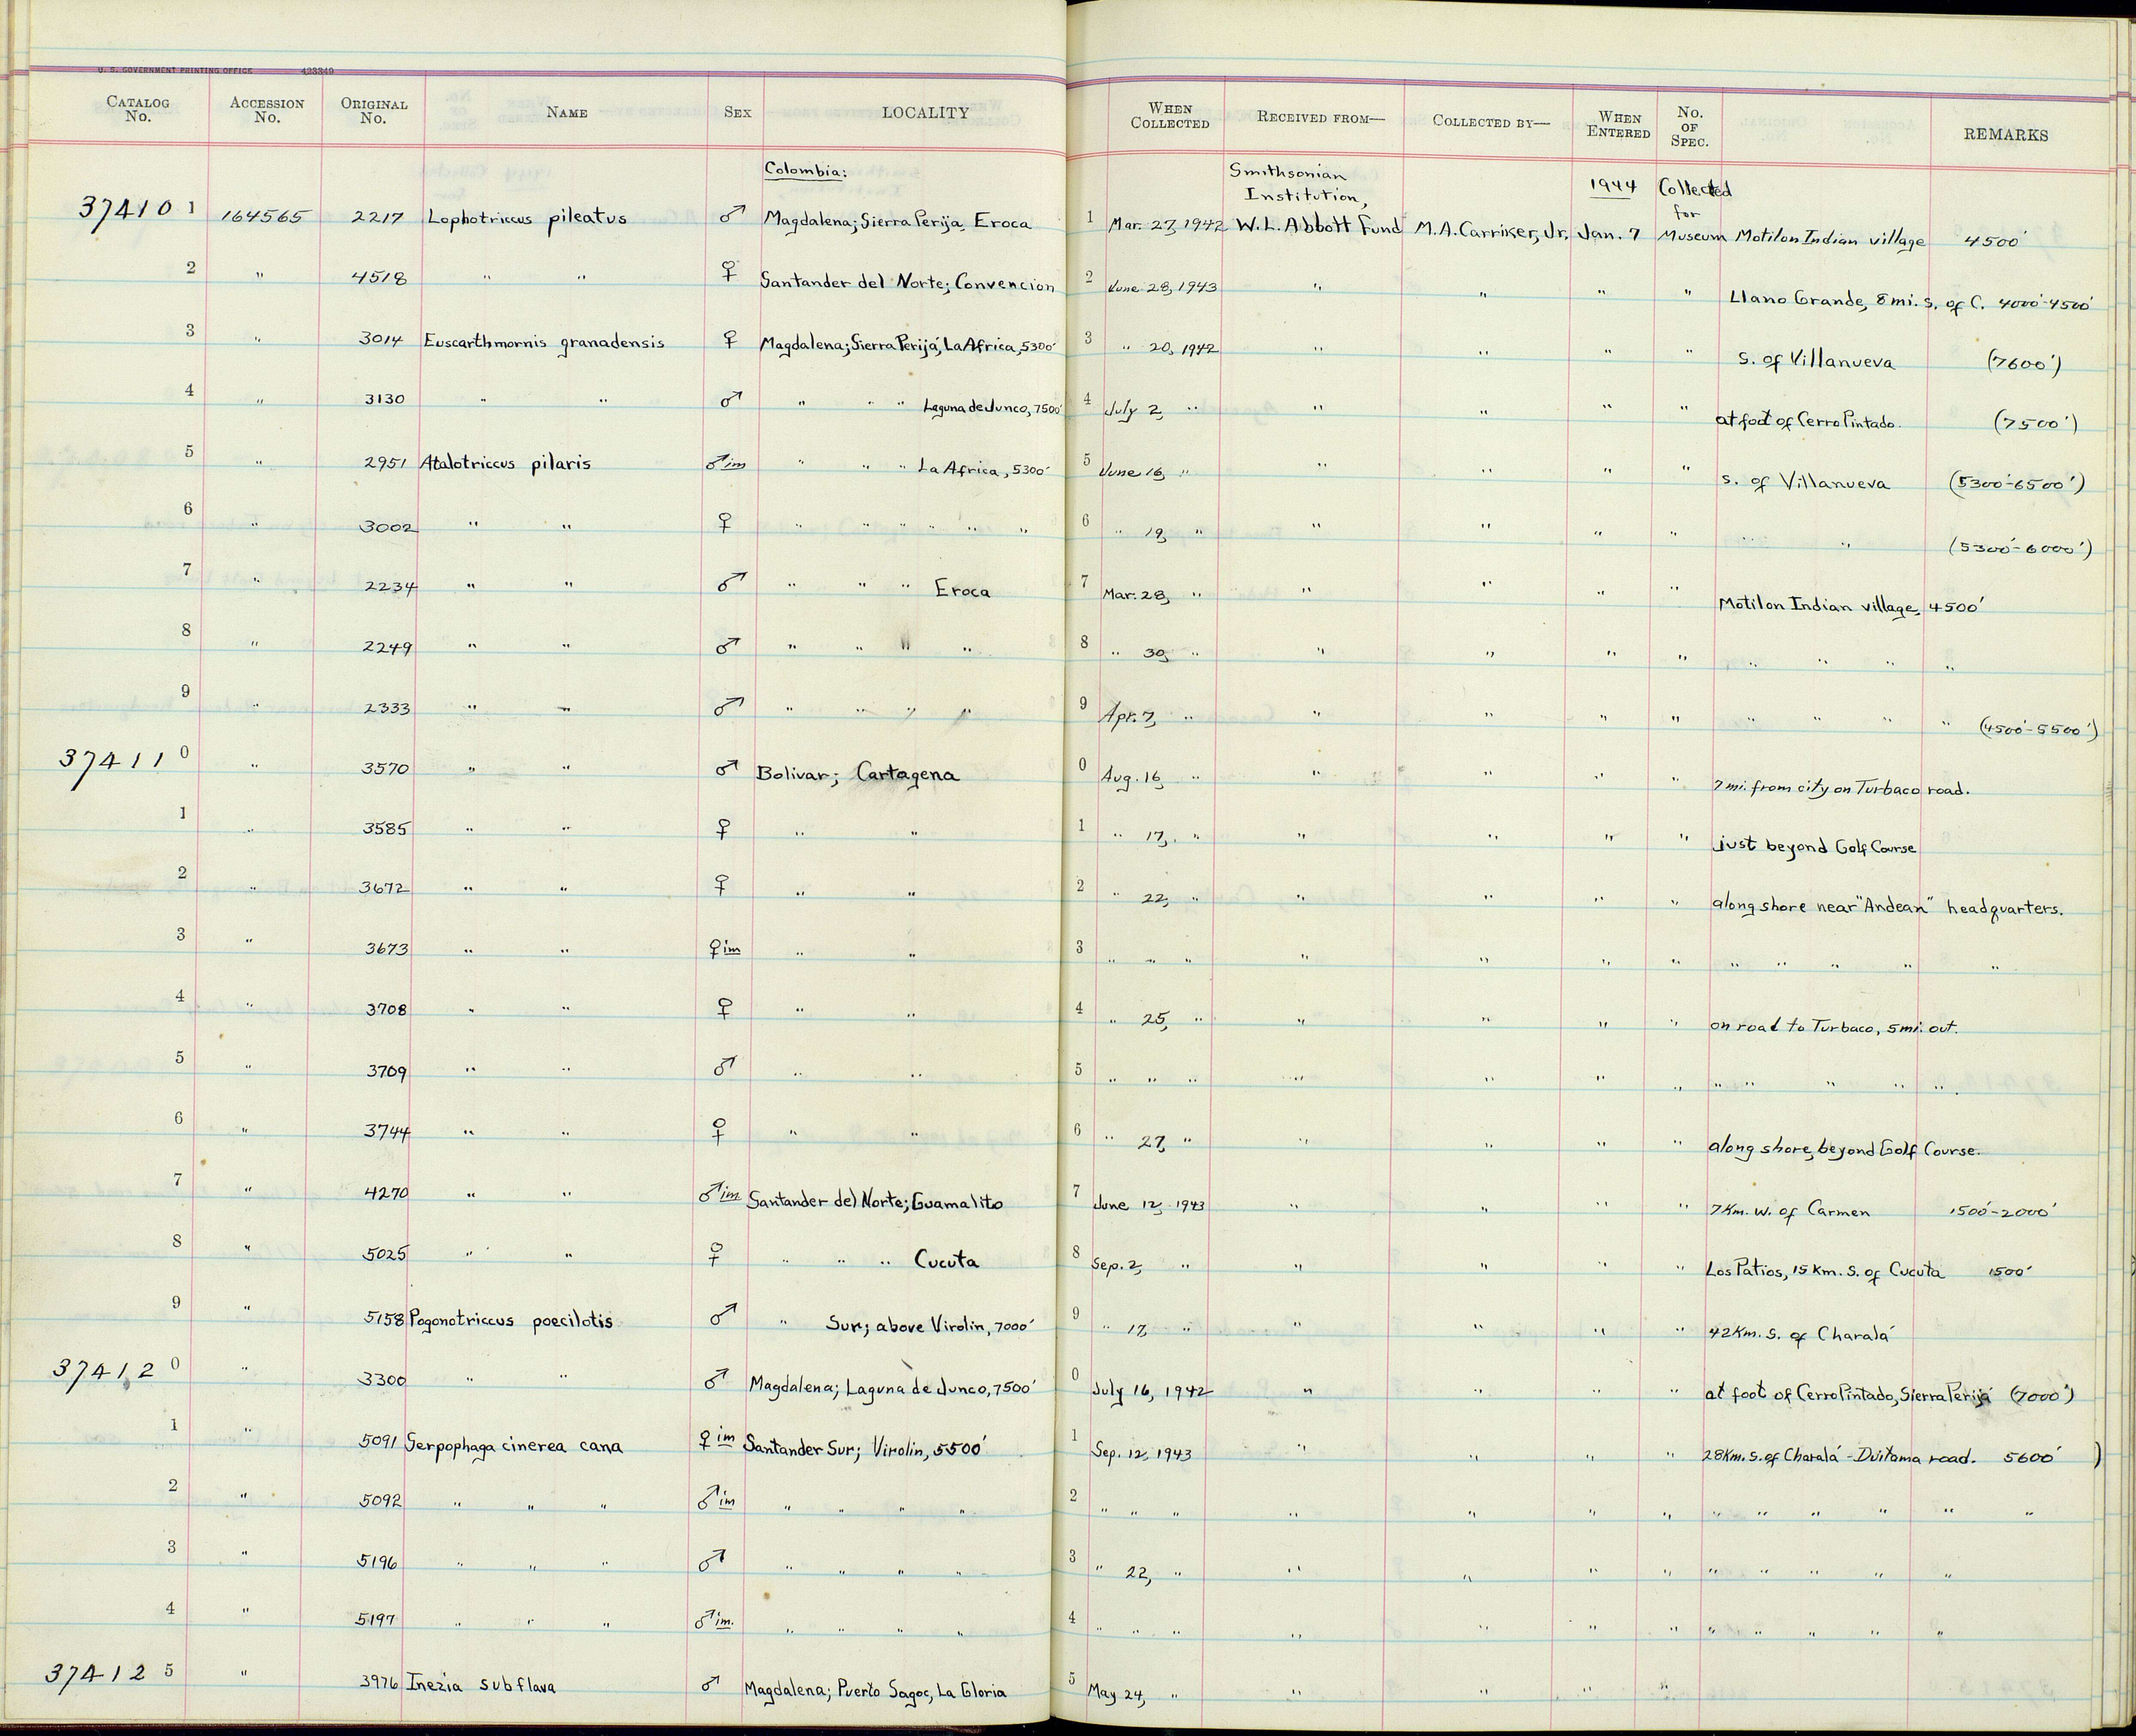 U. S. GOVERNMENT PRINTING OFFICE 423349
CATALOG No. ACCESSION No. ORIGINAL No. NAME SEX LOCALITY WHEN COLLECTED RECEIVED FROM— COLLECTED BY— WHEN ENTERED No. OF SPEC. REMARKS
Colombia: Smithsonian Institution, 1944 Collected for
37410 1 164565 2217 Lophotriccus pileatus ♂ Magdalena; Sierra Perija, Eroca 1 Mar. 27, 1942 W. L. Abbott Fund M. A. Carriker, Jr. Jan. 7 Museum Motilon Indian village 4500'
2 " 4518 " " ♀ Santander del Norte; Convencion 2 June 28, 1943 " " " " Llano Grande, 8 mi. s. of C. 4000'-4500'
3 " 3014 Euscarthmornis granadensis ♀ Magdalena; Sierra Perijá, La Africa, 5300' 3 " 20, 1942 " " " " s. of Villanueva (7600')
4 " 3130 " " ♂ " " " Laguna de Junco, 7500' 4 July 2, " " " " " at foot of Cerro Pintado. (7500')
5 " 2951 Atalotriccus pilaris ♂ im " " " La Africa, 5300' 5 June 16, " " " " " s. of Villanueva (5300'-6500')
6 " 3002 " " ♀ " " " " " " 6 " 19, " " " " " " " (5300'-6000')
7 " 2234 " " ♂ " " " Eroca 7 Mar. 28, " " " " " Motilon Indian village, 4500'
8 " 2249 " " ♂ " " " " 8 " 30, " " " " " " " " "
9 " 2333 " " ♂ " " " " 9 Apr. 7, " " " " " " " " " (4500'-5500')
37411 0 " 3570 " " ♂ Bolivar; Cartagena 0 Aug. 16, " " " " " 7 mi. from city on Turbaco road.
1 " 3585 " " ♀ " " 1 " 17, " " " " " just beyond Golf Course
2 " 3672 " " ♀ " " 2 " 22, " " " " " along shore near "Andean" headquarters.
3 " 3673 " " ♀ im " " 3 " " " " " " " " " " " "
4 " 3708 " " ♀ " " 4 " 25, " " " " " on road to Turbaco, 5 mi. out.
5 " 3709 " " ♂ " " 5 " " " " " " " " " " " "
6 " 3744 " " ♀ " " 6 " 27, " " " " " along shore, beyond Golf Course.
7 " 4270 " " ♂ im Santander del Norte; Guamalito 7 June 12, 1943 " " " " 7 Km. W. of Carmen 1500'-2000'
8 " 5025 " " ♀ " " " Cucuta 8 Sep. 2, " " " " " Los Patios, 15 Km. S. of Cucuta 1500'
9 " 5158 Pogonotriccus poecilotis ♂ " Sur; above Virolin, 7000' 9 " 17, " " " " " 42 Km. S. of Charalá
37412 0 " 3300 " " ♂ Magdalena; Laguna de Junco, 7500' 0 July 16, 1942 " " " " at foot of Cerro Pintado, Sierra Perijá (7000')
1 " 5091 Serpophaga cinerea cana ♀ im Santander Sur; Virolin, 5500' 1 Sep. 12, 1943 " " " " 28 Km. S. of Charalá - Duitama road. 5600' )
2 " 5092 " " " ♂ im " " " " 2 " " " " " " " " " " " " "
3 " 5196 " " " ♂ " " " " 3 " 22, " " " " " " " " " "
4 " 5197 " " " ♂ im. " " " " 4 " " " " " " " " " " " "
37412 5 " 3976 Inezia subflava ♂ Magdalena; Puerto Sagoc, La Gloria 5 May 24, " " " " "